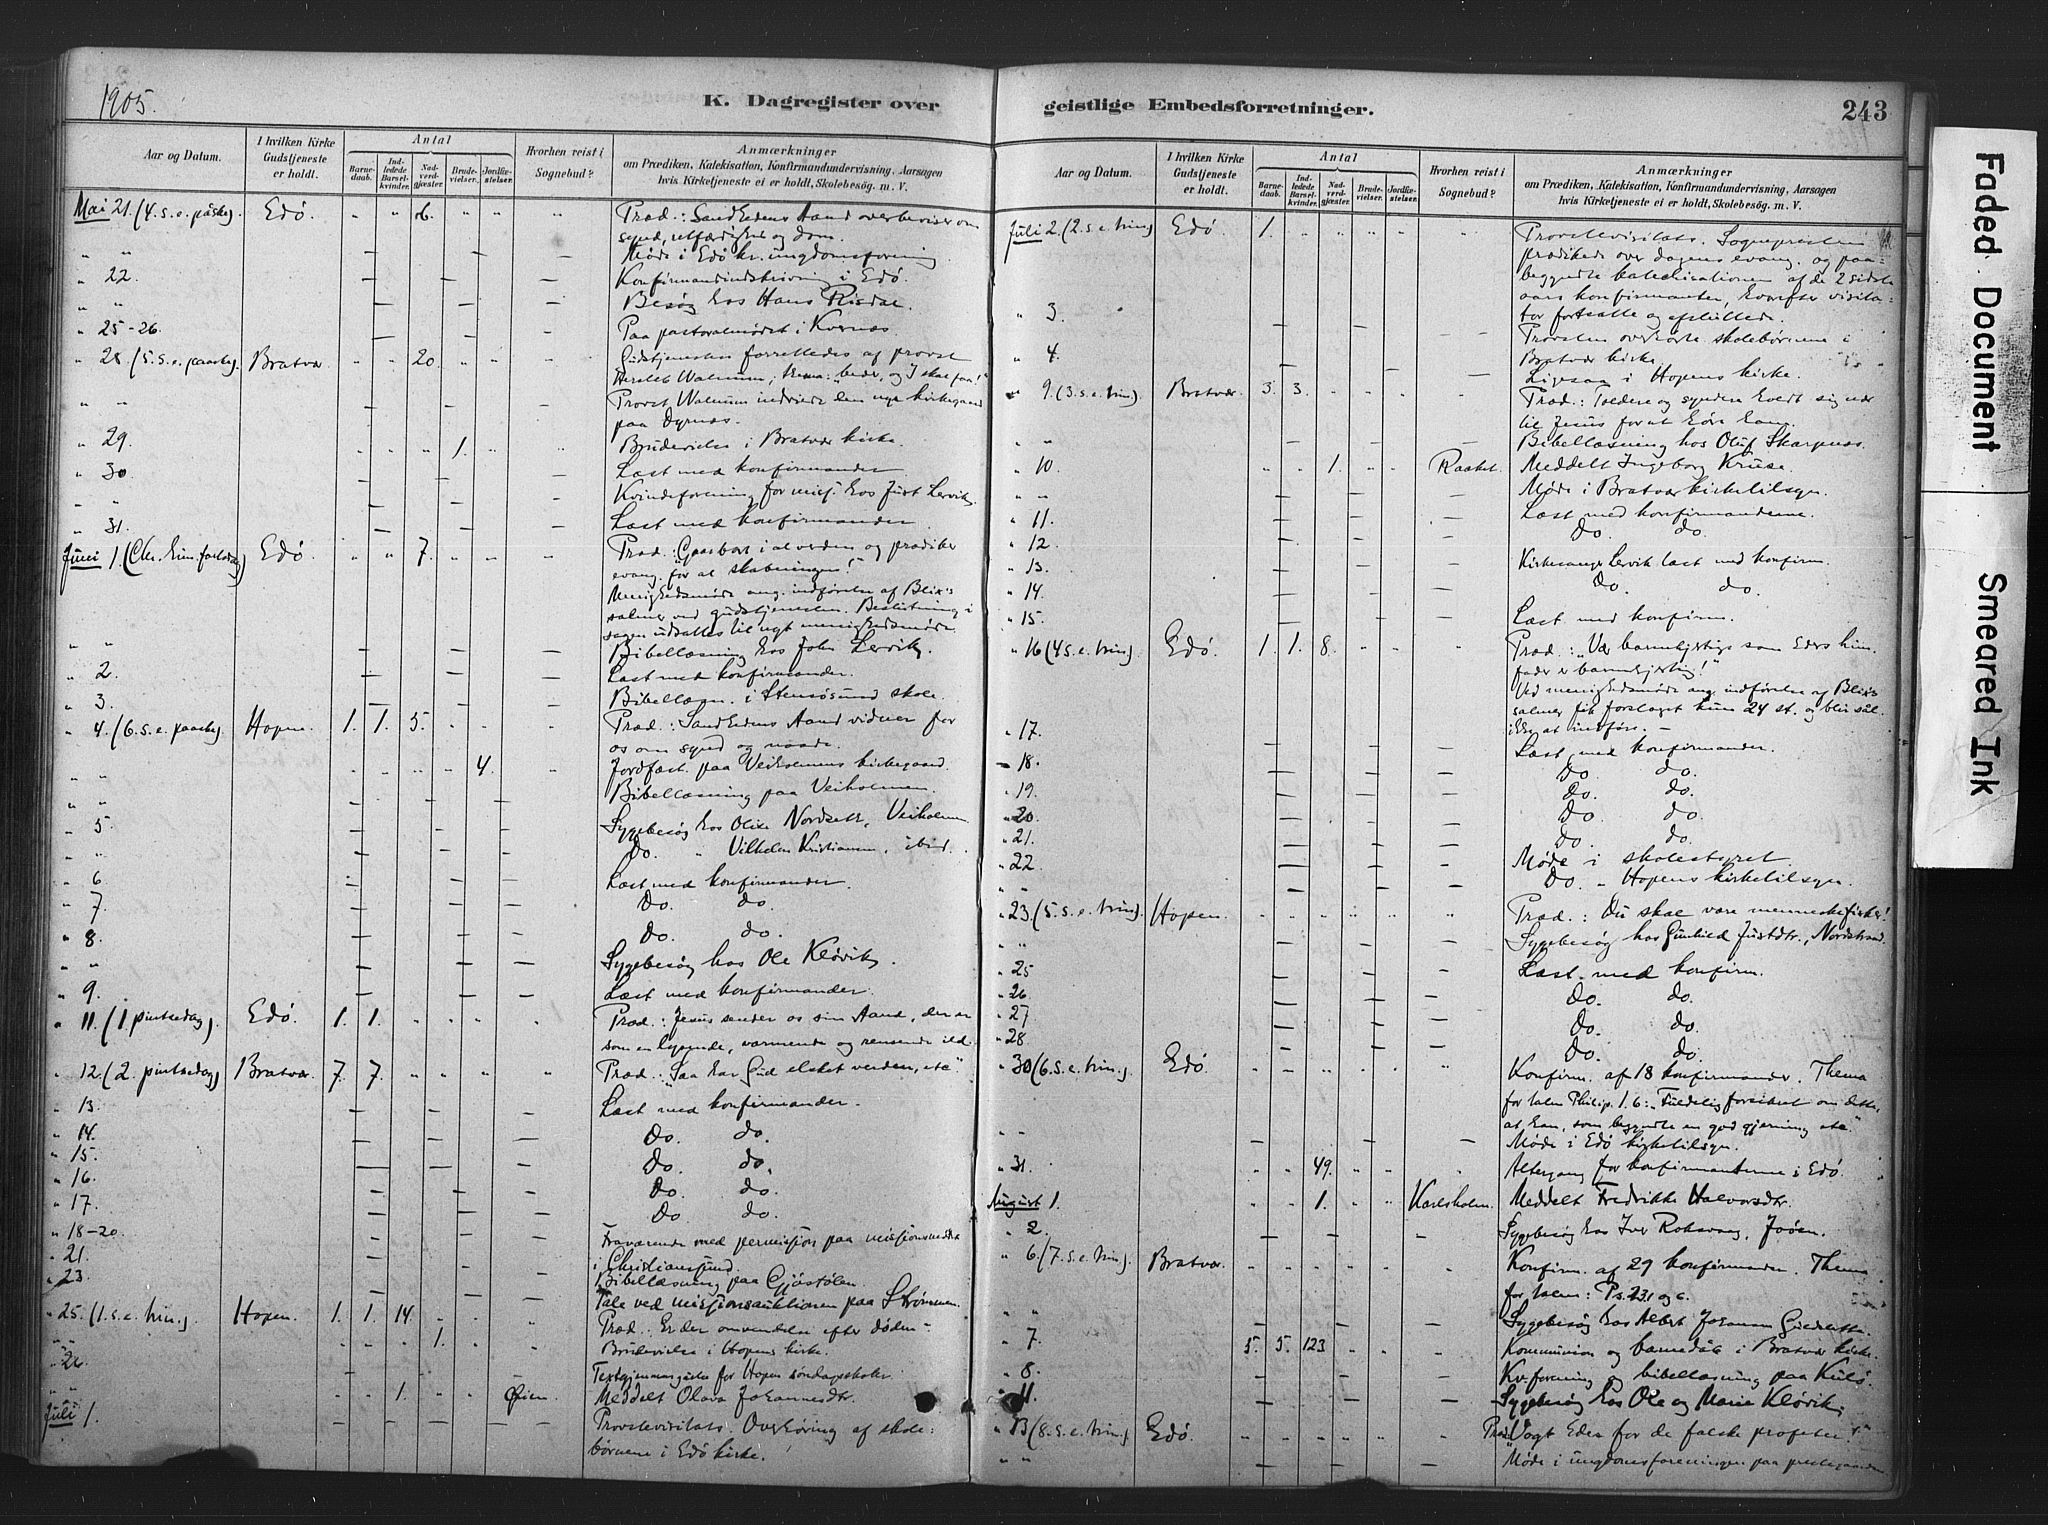 1905.
K. Dagregister over
Aar og Datum.
I hvilken Kirke Gudstjeneste er holdt.
Antal
Barnedaab.
Indledede Barselkvinder.
Nadverdgjæster.
Brudevielser.
Jordfæstelser.
Hvorhen reist i Sognebud?
Anmærkninger
om Prædiken, Katekisation, Konfirmandundervisning, Aarsagen
hvis Kirketjeneste ei er holdt, Skolebesøg. m. V.
Mai 21. (4. s. e. påske). Edø. " " 6. " " " Præd.: Sandhedens Aand overbeviser om
synd, retfærdighed og dom.
" " — — — Møde i Edø kr. ungdomsforening
" 22. — — — Konfirmandindskrivning i Edø.
" " — — — Besøg hos Hans Risdal.
" 25-26. — — — Paa pastoralmødet i Kvernæs.
" 28. (5. s. e. paaske). Bratvær " " 20. " " " Gudstjenesten forrettedes af provst
Walnum; thema: "beder, og I skal faa!"
" " — — — Provst Walnum indviede den nye kirkegaard
paa Dyrnæs.
" 29. " " " 1. " " Brudevielse i Bratvær kirke.
" 30. — — — Læst med konfirmander
" " — — — Kvindeforening for miss. hos Just Lervik.
" 31. — — — Læst med konfirmander.
Juni 1. (Chr. himfartsdag) Edø. " " 7. " " " Præd.: "Gaa bort i al verden og prædiker
evang. for al skabningen!"
Menighedsmøde ang. indførelse af Blix's
salmer ved gudstjenesten. Beslutning i
sagen udsattes til nyt menighedsmøde.
" " — — — Bibellæsning hos John Lervik.
" 2. — — — Læst med konfirmander.
" 3. — — — Bibellæsn. i Stensøsund skole.
" 4. (6. s. e. paaske). Hopen. 1. 1. 5. " " " Præd.: Sandhedens Aand vidner for
os om synd og naade.
" " " " " " 4. " Jordfæst. paa Veiholmens kirkegaard.
" " — — — Bibellæsning paa Veiholmen.
" 5. — — — Sygebesøg hos Oline Nordseth, Veiholmen
" " — — — Do. " Vilhelm Kristiansen, ibid.
" 6. — — — Læst med konfirmander.
" 7. — — — Do. do.
" 8. — — — Do. do.
" " — — — Sygebesøg hos Ole Kløvik.
" 9. — — — Læst med konfirmander.
" 11. (1. pintsedag). Edø. 1. 1. " " " " Præd.: Jesus sender os sin Aand, der er
som en lysende, varmende og rensende ild.
" 12. (2. pintsedag) Bratvær. 7. 7. " " " " Præd.: "Saa har Gud elsket verden, etc."
" 13. — — — Læst med konfirmander.
" 14. — — — Do. do.
" 15. — — — Do. do.
" 16. — — — Do. do.
" 17. — — — Do. do.
" 18-20. — — — Fraværende med permission paa missionsmødet
i Christianssund.
" 21. — — — Bibellæsning paa Gjøstølen.
" 23. — — — Tale ved missionsauktionen paa Strømmen.
" 25. (1. s. e. trin.) Hopen. 1. 1. 14. " " " Præd.: Er der omvendelse efter døden?
" " " " " 1. " " Brudevielse i Hopens kirke.
" 26. Textgjennemgaaelse for Hopen søndagsskole.
" " " " 1. " " Øien. Meddelt Olava Johannesdtr.
Juli 1. — — — Provstevisitats. Overhøring af skole-
børnene i Edø kirke.
geistlige Embedsforretninger.
243
Aar og Datum.
I hvilken Kirke Gudstjeneste er holdt.
Antal
Barnedaab.
Indledede Barselkvinder.
Nadverdgjæster.
Brudevielser.
Jordfæstelser.
Hvorhen reist i Sognebud?
Anmærkninger
om Prædiken, Katekisation, Konfirmandundervisning, Aarsagen
hvis Kirketjeneste ei er holdt, Skolebesøg. m. V.
Juli 2. (2. s. e. trin) Edø. 1. " " " " " Provstevisitats. Sognepresten
prædikede over dagens evang. og paa-
begyndte katechisationen af de 2 sidste
aars konfirmanter, hvorefter visita-
tor fortsatte og afsluttede.
" 3. — — — Provsten overhørte skolebørnene i
Bratvær kirke.
" 4. — — — Ligesaa i Hopens kirke.
" 9. (3. s. e. trin). Bratvær. 3. 3. " " " " Præd.: Toldere og syndere holdt sig nær
til Jesus for at høre ham.
" " — — — Bibellæsning hos Oluf Skarpnæs.
" 10. " " 1. " " Raaket. Meddelt Ingeborg Kruse.
" " — — — Møde i Bratvær kirketilsyn.
" 11. — — — Læst med konfirmanderne.
" 12. — — — Do. do.
" 13. — — — Kirkesanger Lervik læst med konfirm.
" 14. — — — Do. do.
" 15. — — — Læst med konfirm.
" 16 (4. s. e. trin). Edø. 1. 1. 8. " " " Præd.: "Vær barmhjertige som Eders him.
fader er barmhjertig!"
Ved menighedsmøde ang. indførelse af Blix's
salmer fik forslaget kun 24 st. og blir sål.
i Edø at indføre. —
" 17. — — — Læst med konfirmander.
" 18. — — — Do. do.
" 19. — — — Do. do.
" 20. — — — Do. do.
" 21. — — — Do. do.
" 22. — — — Møde i skolestyret.
" " — — — Do. " Hopens kirketilsyn.
" 23. (5. s. e. trin). Hopen. " " " " " " Præd.: Du skal være menneskefisker!
" " — — — Sygebesøg hos Gunhild Justdtr., Nordstrand.
" 25 — — — Læst med konfirm.
" 26. — — — Do. do.
" 27 — — — Do. do.
" 28. — — — Do. do.
" 30 (6. s. e. trin.). Edø. " " " " " " Konfirm. af 18 konfirmander. Thema
for talen Philip. 1. 6: "Fuldelig forsikret om dette,
at han, som begyndte en god gjerning etc."
" " — — — Møde i Edø kirketilsyn.
" 31. " " 49. " " " Altergang for konfirmanterne i Edø.
August 1. " " 1. " " Karlsholm. Meddelt Fredrikke Halvorsdtr.
" 2. — — — Sygebesøg hos Iver Roksvaag, Jøøsen.
" 6. (7. s. e. trin). Bratvær. " " " " " " Konfirm. af 29 konfirmander. Thema
for talen: Ps. 23.1 og 6.
" " — — — Sygebesøg hos Albert Johansen
" 7. 5. 5. 123 " " " Kommunion og barnedåb i Bratvær kirke.
" 8. — — — Kv.forening og bibellæsning paa Kulø.
" 11. — — — Sygebesøg hos Ole og Marie Kløvik.
" 13 (8. s. e. trin.) Edø. " " " " " " Præd: "Vogt Eder for de falske profeter!"
" " — — — Møde i ungdomsforeningen paa prestegaarden
Faded Document
Smeared Ink